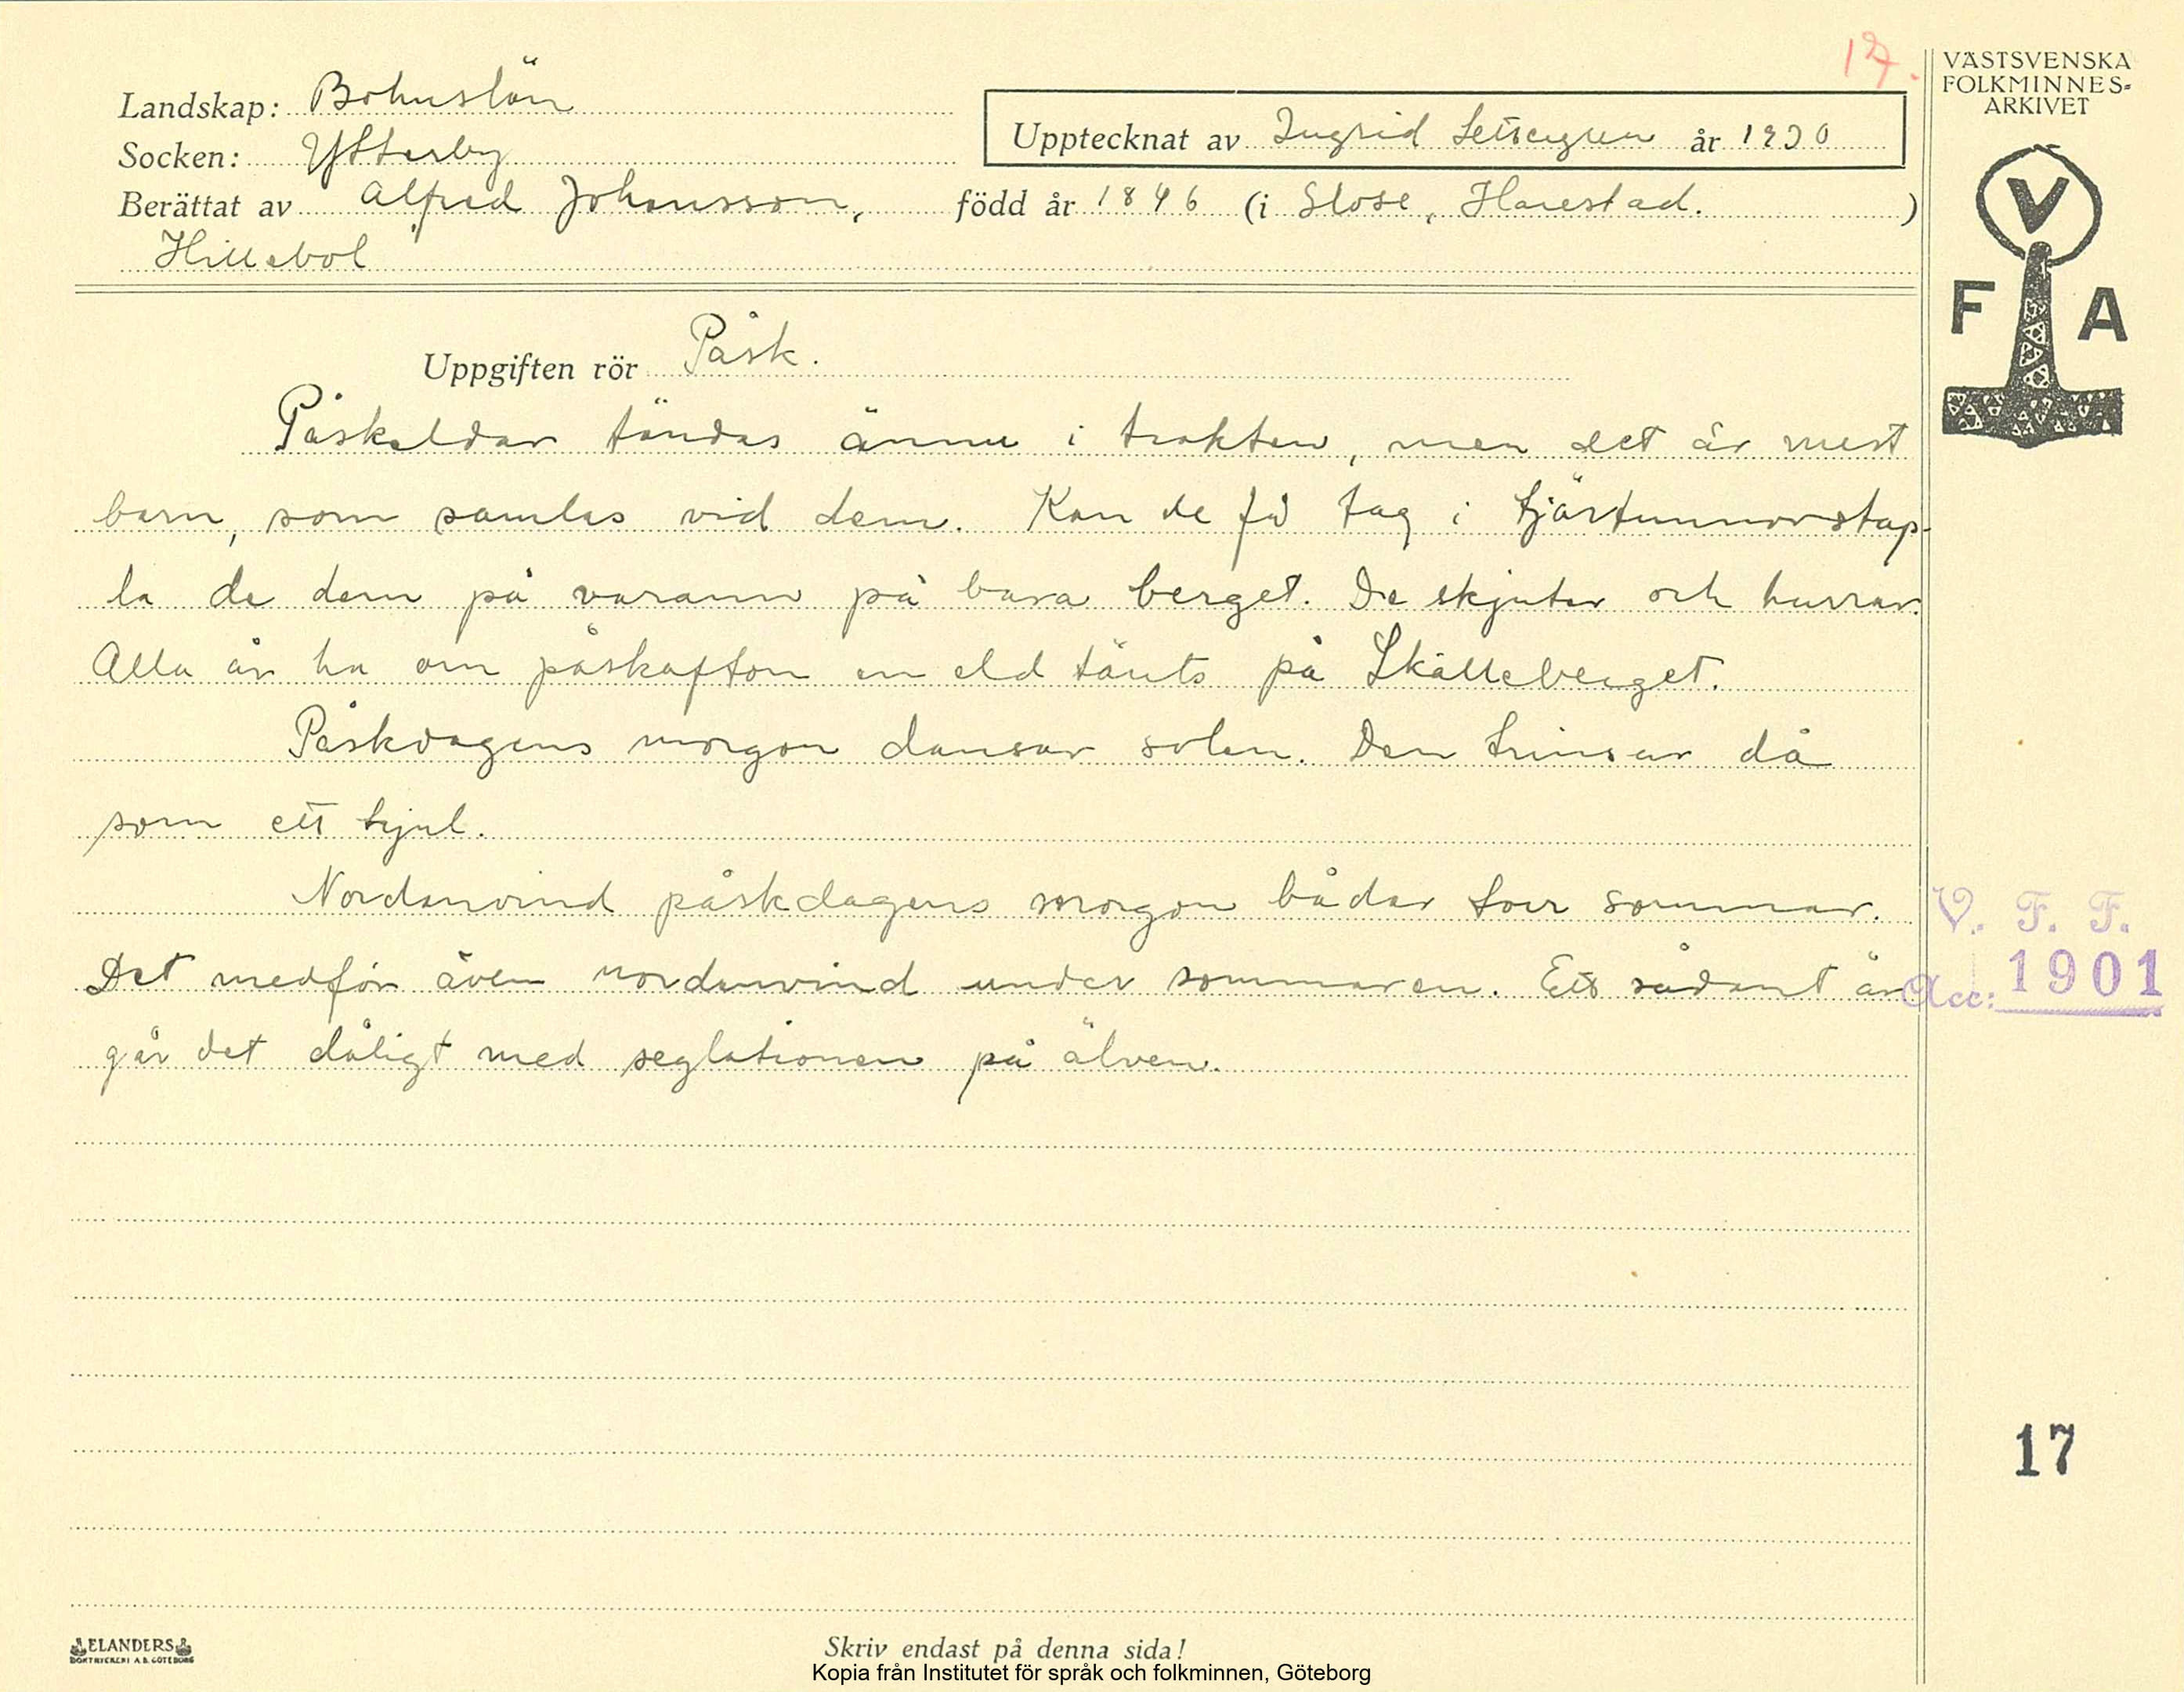 17.
VÄSTSVENSKA
FOLKMINNES-
ARKIVET
Landskap: Bohuslän
Upptecknat av Ingrid år 1930
Socken: Ytterby
Berättat av Alfred Johansson, född år 1846 (i Slose, Harestad. )
Hillebol
V
F A
Uppgiften rör Påsk.
Påskeldar tändas ännu i trakten, men det är mest
barn, som samlas vid dem. Kan de få tag i tjärtunnor stap-
la de dem på varann på bara berget. De skjuter och hurrar.
Alla år ha om påskafton en eld tänts på Skälleberget.
Påskdagens morgon dansar solen. Den trinsar då
som ett hjul.
Nordanvind påskdagens morgon bådar torr sommar.
Det medför även nordanvind under sommaren. Ett sådant år
går det dåligt med seglationen på älven.
V. F. F.
Acc: 1901
17
ELANDERS
BOKTRYCKERI A.B. GÖTEBORG
Skriv endast på denna sida!
Kopia från Institutet för språk och folkminnen, Göteborg